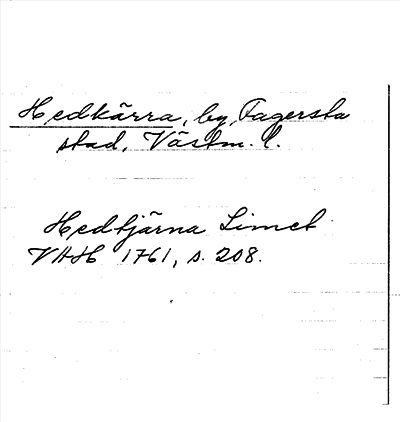 Hedkärra, by, Fagersta
stad, Västm. l.
Hedtjärna Limet
VHH 1761, s. 208.